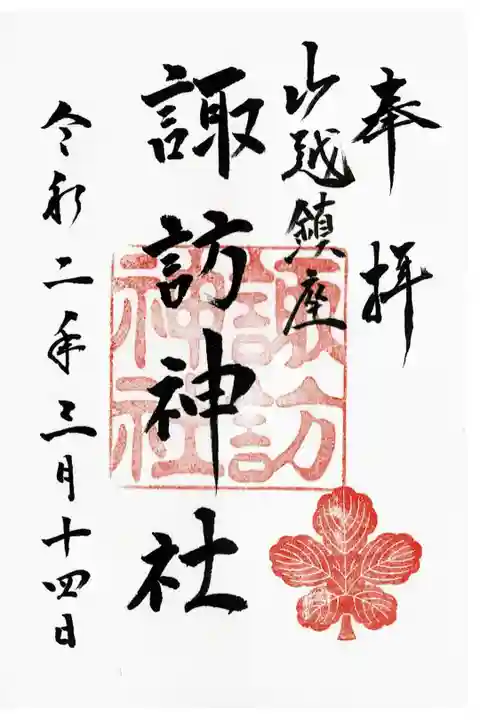 奉拝
山越鎮座
諏訪神社
令和二年三月十四日
諏訪
神社